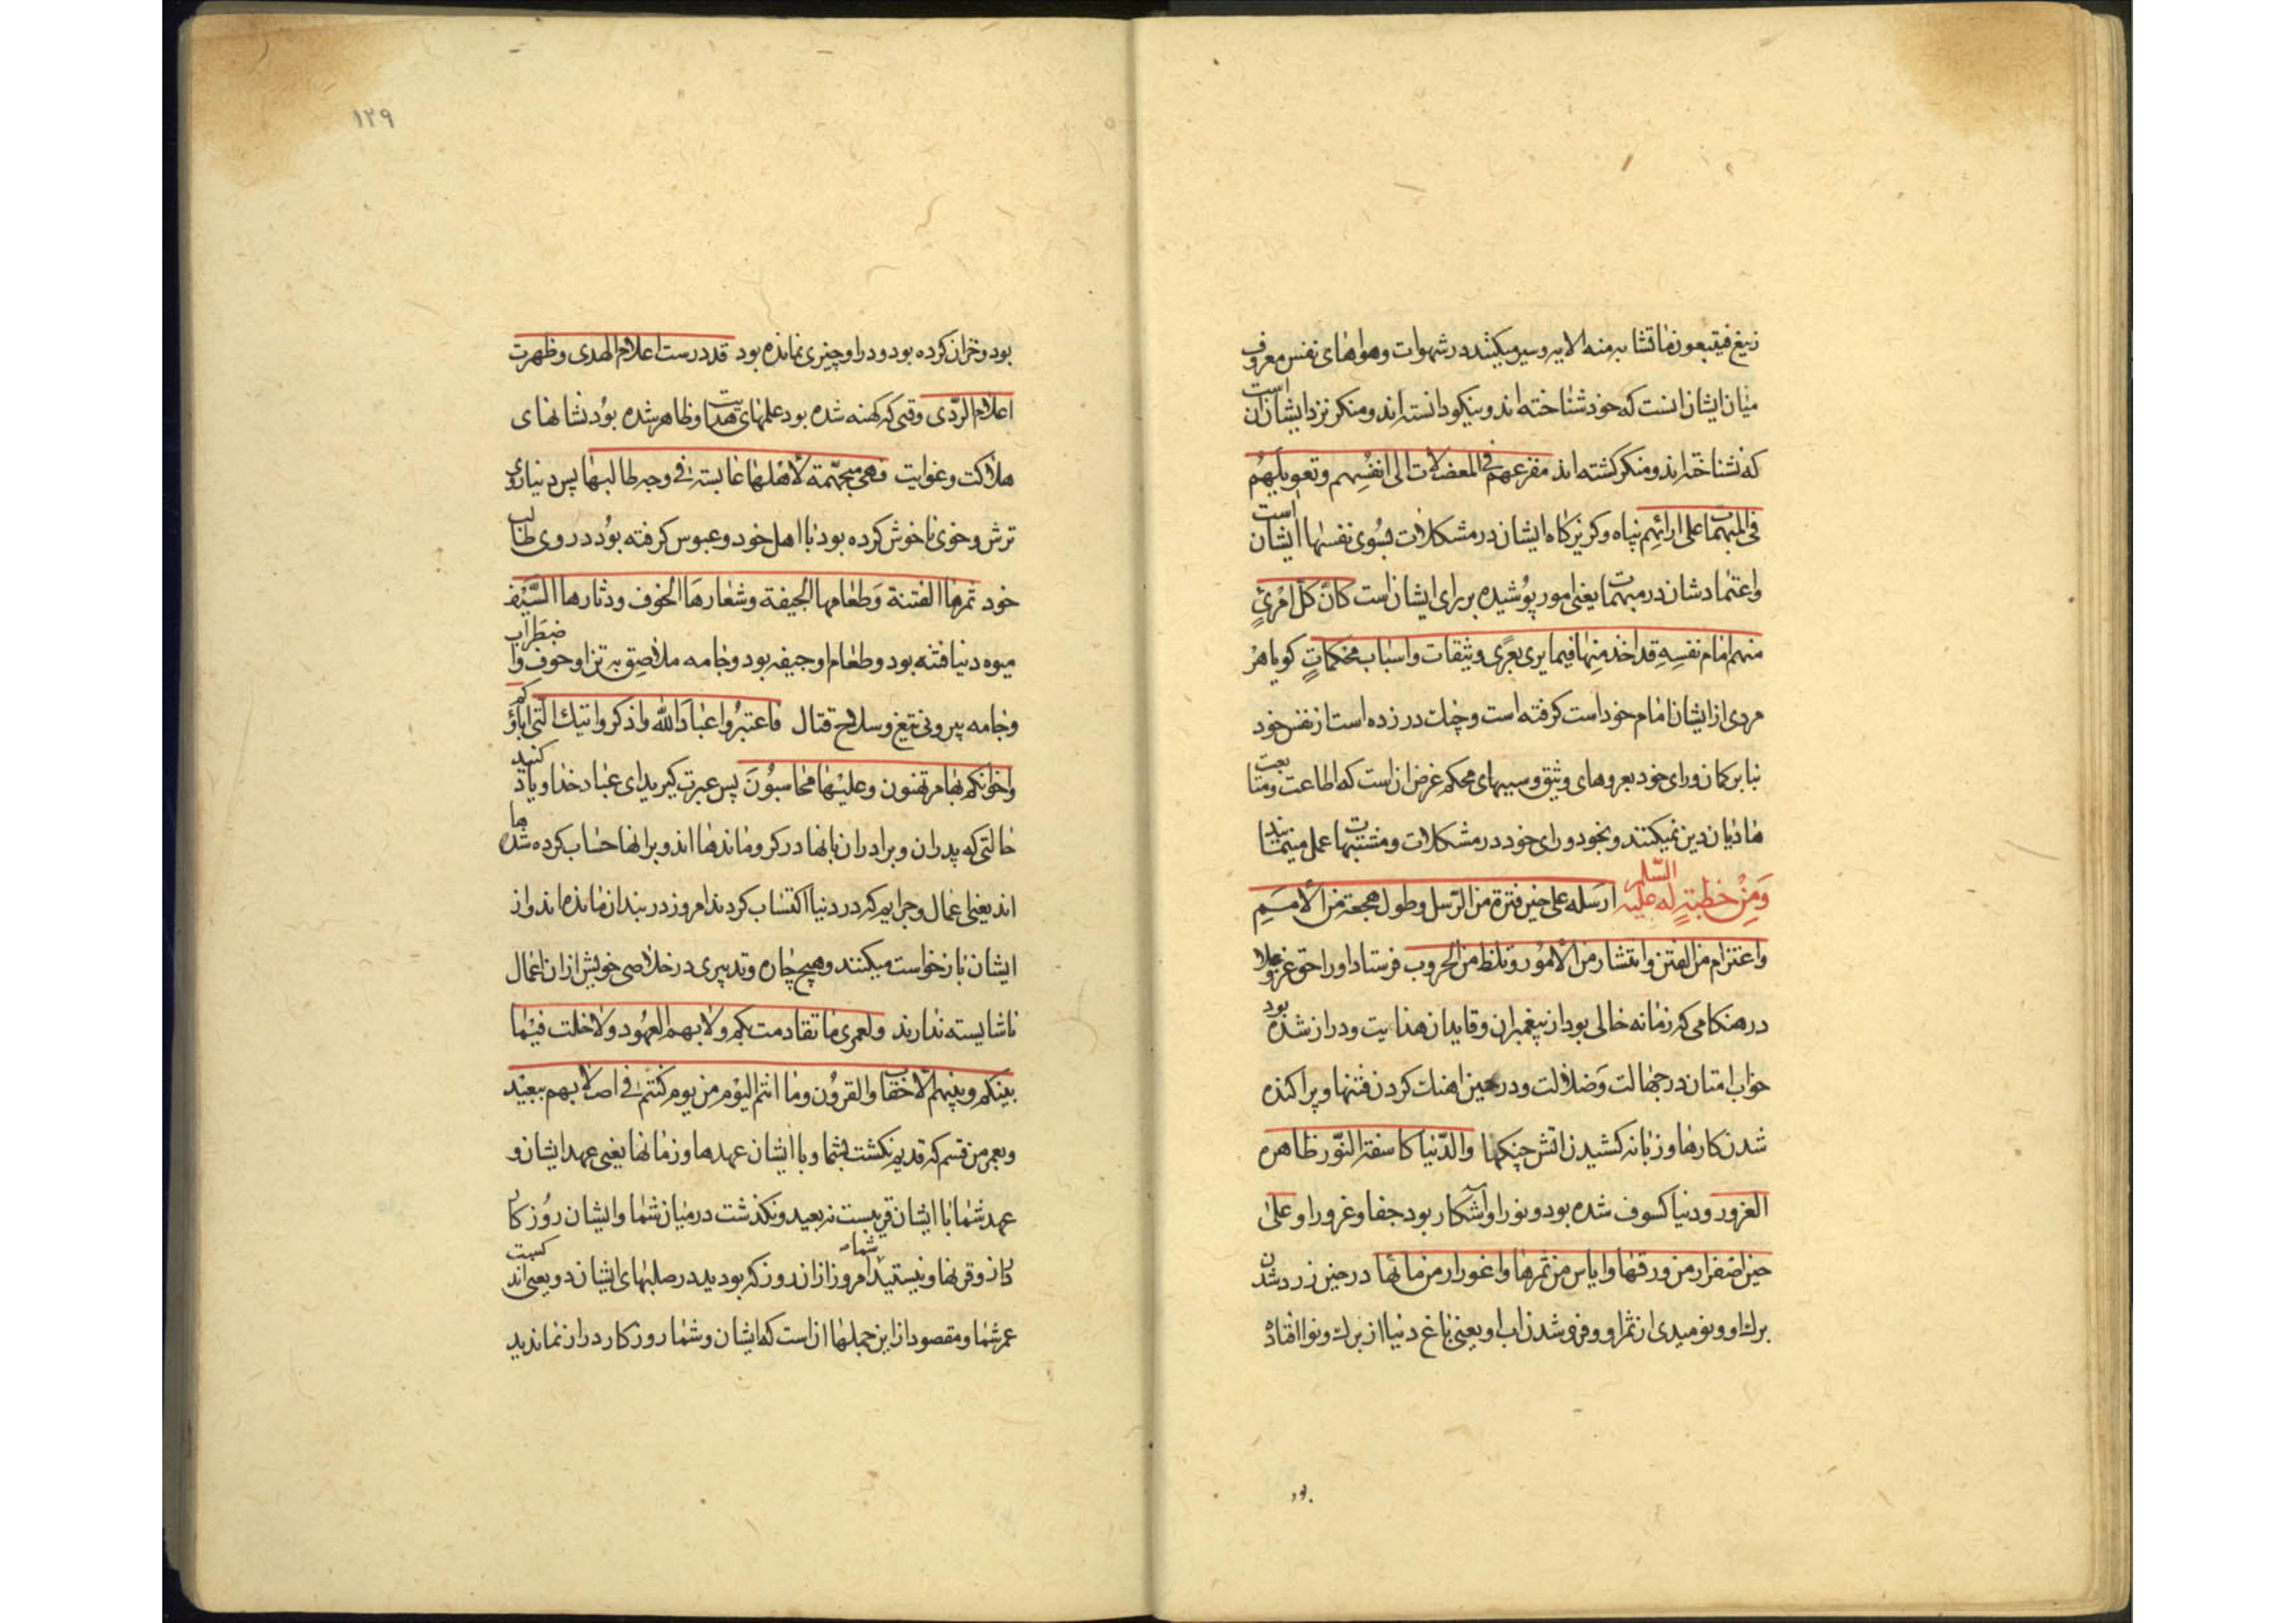 زیغ فیتبعون ما تشابه منه الایه وسیر میکنند در شهوات وهواهای نفس معروف
میان ایشان انست که خود شناخته اند ونیکو دانسته اند ومنکر نزد ایشان ان است
که نشناخته اند ومنکر کشته اند مفزعهم فی المعضلات الی انفسهم وتعویلهم
فی المبهمات علی ارائهم پناه وکریزکاه ایشان در مشکلات بسوی نفسها ایشان است
واعتمادشان در مبهمات یعنی امور پوشیده بر رای ایشان است کانّ کلّ امرئٍ
منهم امام نفسهِ قد اخذ منها فیما یری بعرًی وثیقات واسباب محکماتٍ کویا هر
مردی از ایشان امام خود است کرفته است وچنك در زده است از نفس خود
بنابر کمان ورای خود بعروهای وثیق وسببهای محکم غرض ان است که اطاعت ومتابعت
هادیان دین نمیکنند وبخود ورای خود در مشکلات ومشتبهات عمل مینمایند
وَمِنْ خطبةٍ له علیه السّلم ارسله علی حین فترة من الرّسل وطول هجعة من الأممِ
واعتزام من الفتن وانتشار من الأمور وتلظ من الحروب فرستاد او را حق عزوعلا
در هنکامی که زمانه خالی بود از پیغمبران وقایدان هدایت ودراز شده بود
خواب امتان در جهالت وَضلالت ودر حین اهنك کردن فتنها وپراکنده
شدن کارها وزبانه کشیدن اتش جنکها والدّنیا کاسفة النّور ظاهره
الغرور ودنیا کسوف شده بود ونور او واشکار بود جفا وغرور او علی
حین اصفرار من ورقها وایاس من ثمرها واغورار من مائها در حین زرد شدن
برك او ونومیدی از ثمر او وفرو شدن اب او یعنی باغ دنیا از برك ونوا افتاده
بود
۱۲۹
بود وخزان کرده بود ودر او چیزی نمانده بود قد درست اعلام الهدی وظهرت
اعلام الرّدی وقتی که کهنه شده بود علمهای هدایت وظاهر شده بود نشانهای
هلاکت وغوایت فهی متجهّمة لأهلها عابسة فی وجه طالبها پس دنیا روی
ترش وخوی ناخوش کرده بود با اهل خود وعبوس کرفته بود در روی طالب
خود ثمرها الفتنة وَطعامها الجیفة وشعارهَا الخوف ودثارها السَّیف
میوه دنیا فتنه بود وطعام او جیفه بود وجامه ملاصق به تن او خوف واضطراب
وجامه بیرونی تیغ وسلاح قتال فاعتبرُوا عبادَالله واذکروا تیك الّتی اباؤکم
واخوانکم بها مرتهنون وعلیها محاسبُونَ پس عبرت کیرید ای عباد خدا ویاد کنید
حالتی که پدران وبرادران بانها در کرو مانده‌اند وبرانها حساب کرده شده ها
اند یعنی عمال وجرایم که در دنیا اکتساب کردند امروز در بندان مانده اند واز
ایشان باز خواست میکنند وهیچ چاره وتدبیری در خلاصی خویش از ان اعمال
ناشایسته ندارند ولعمری ما تقادمت بکم ولا بهم العهود ولا خلت فیما
بینکم وبینهم الأحقاب والقرون وما انتم الیوم من یوم کنتم فی اصلابهم ببعید
وبعمر من قسم که قدیم نکشت بشما وبا ایشان عهدها وزمانها یعنی عهد ایشان و
عهد شما با ایشان قریبست نه بعید ونکذشت در میان شما وایشان روز کار
دراز وقرنها ونیستید شما امروز از ان روز که بودید در صلبهای ایشان دور یعنی اندکست
عمر شما ومقصود از این جملها ان است که ایشان وشما روزکار دراز نماندید